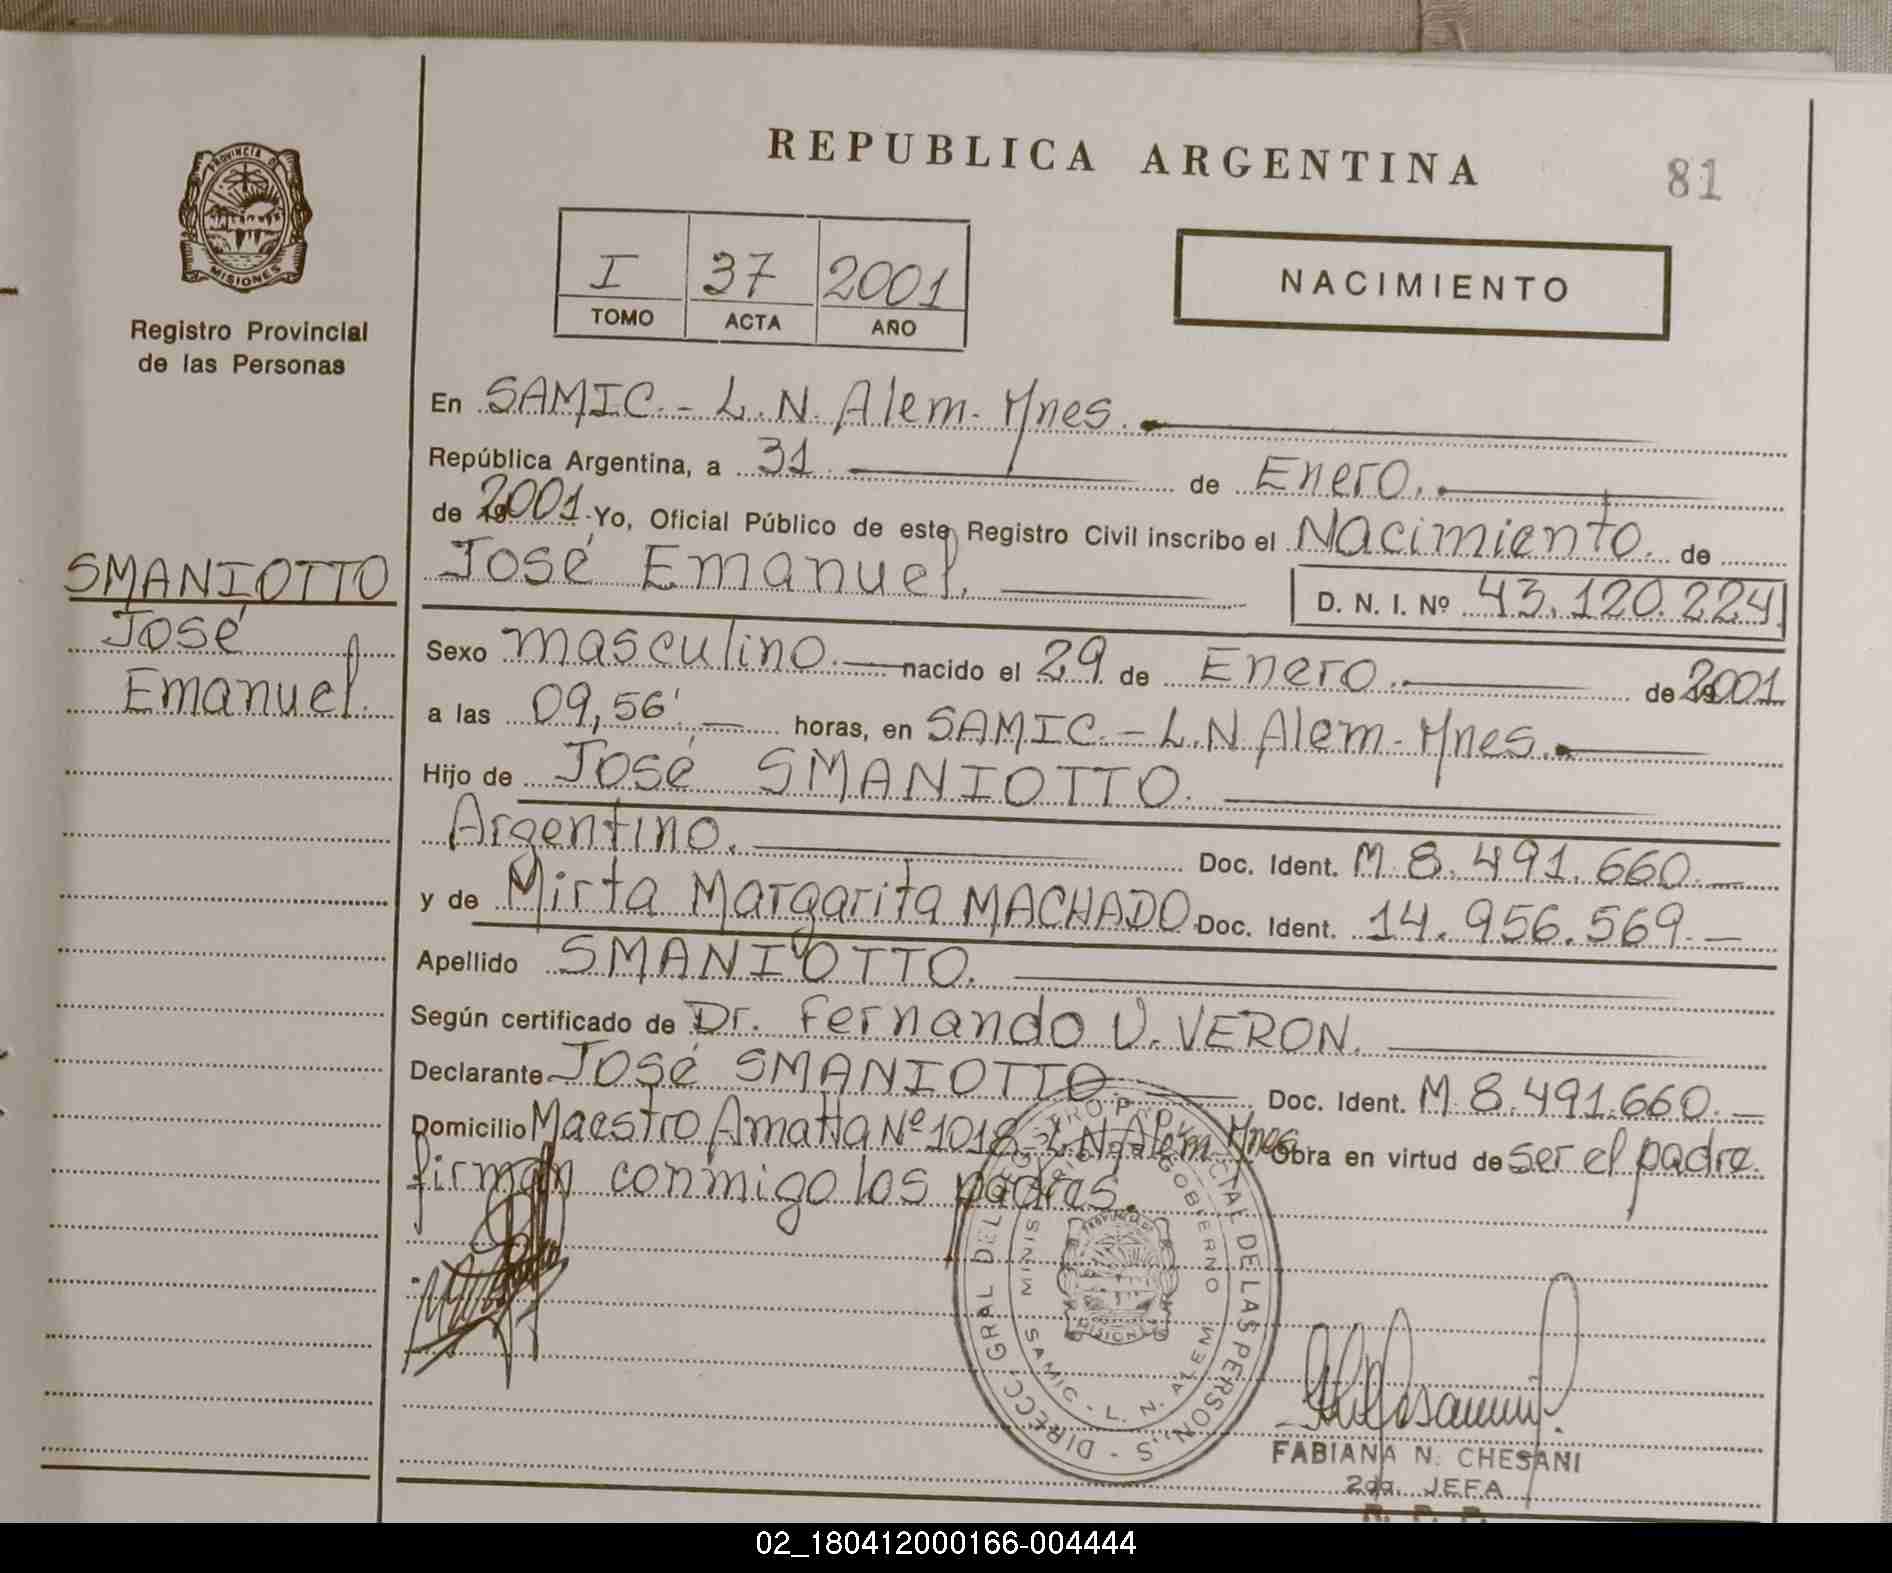 REPUBLICA ARGENTINA
81
PROVINCIA DE
MISIONES
Registro Provincial
de las Personas
I 37 2001
TOMO ACTA AÑO
NACIMIENTO
En SAMIC.- L.N. Alem- Mnes.
República Argentina, a 31 de Enero.
de 19 2001 Yo, Oficial Público de este Registro Civil inscribo el Nacimiento. de
José Emanuel. D. N. I. Nº 43.120.224.
SMANIOTTO
José
Emanuel.
Sexo masculino.— nacido el 29 de Enero. de 19 2001
a las 09,56'.— horas, en SAMIC.- L.N Alem- Mnes.
Hijo de José SMANIOTTO.
Argentino. Doc. Ident. M 8.491.660.—
y de Mirta Margarita MACHADO. Doc. Ident. 14.956.569.—
Apellido SMANIOTTO.
Según certificado de Dr. Fernando V. VERON.
Declarante José SMANIOTTO Doc. Ident. M 8.491.660.—
Domicilio Maestro Amatta Nº 1018- L.N Alem- Mnes. Obra en virtud de ser el padre.
firman conmigo los padres.
DIRECC. GRAL DEL REGISTRO PROVINCIAL DE LAS PERSONAS
GOBIERNO
SAMIC - L. N. ALEM
FABIANA N. CHESANI
2da. JEFA
R. P. P.
02_180412000166-004444